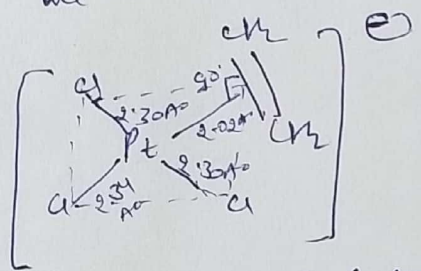 CH2
⊖
Cl
90°
2.30A°
Pt
2.02A°
CH2
2.30A°
Cl
2.34
A°
Cl